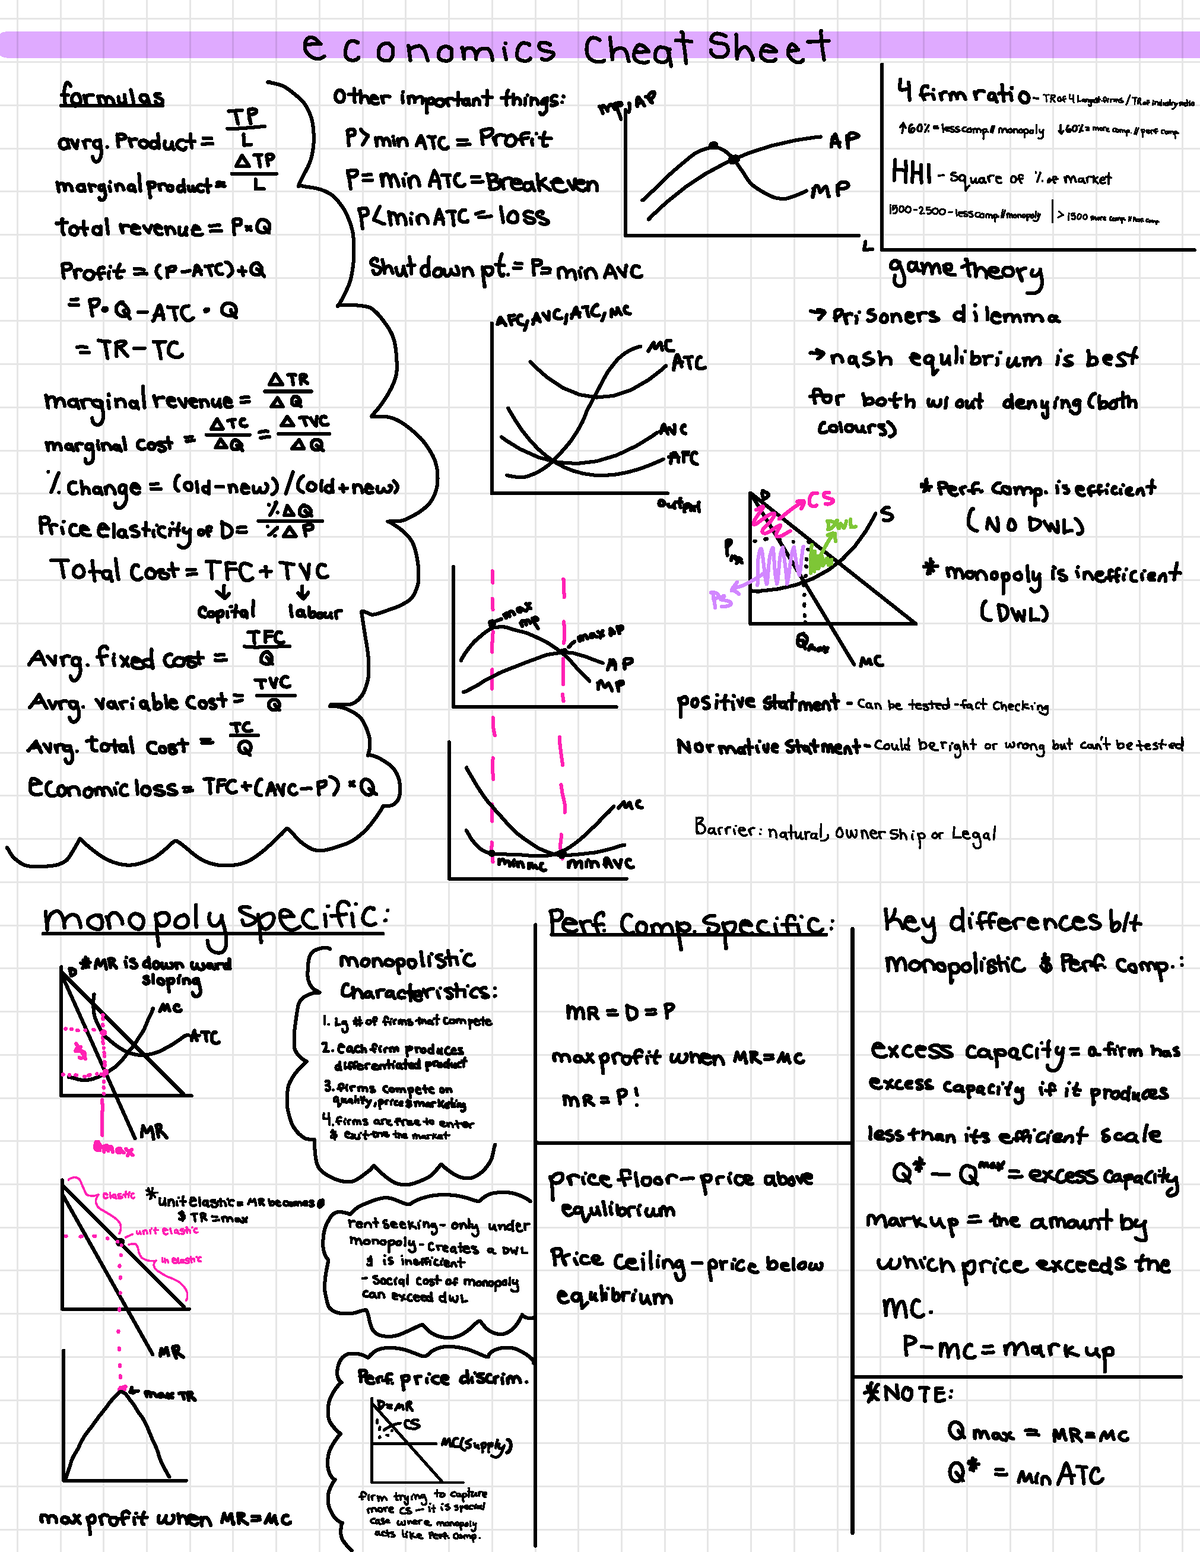 economics Cheat Sheet
formulas
avrg. Product = TP / L
marginal product = ΔTP / L
total revenue = P×Q
Profit = (P-ATC)+Q
= P·Q-ATC·Q
= TR-TC
marginal revenue = ΔTR / ΔQ
marginal cost = ΔTC / ΔQ = ΔTVC / ΔQ
% Change = (old-new)/(old+new)
Price elasticity of D = %ΔQ / %ΔP
Total Cost = TFC + TVC
↓ ↓
Capital labour
Avrg. fixed cost = TFC / Q
Avrg. variable cost = TVC / Q
Avrg. total cost = TC / Q
economic loss = TFC+(AVC-P)*Q
Other important things:
P>min ATC = Profit
P=min ATC = Breakeven
P<min ATC = loss
Shut down pt. = P=min AVC
MP, AP
AP
MP
L
4 firm ratio - TR of 4 Largest firms / TR of industry
↑60% = less comp.// monopoly ↓60% = more comp. // perf comp
HHI - square of % of market
1500-2500 - less comp // monopoly > 1500 more comp. // perf comp
game theory
→ Prisoners dilemma
→ nash equlibrium is best
for both w/out denying (both
colours)
AFC, AVC, ATC, MC
MC
ATC
AVC
AFC
output
D
CS
S
DWL
Pm
PS
Qmax
MC
* Perf. Comp. is efficient
(NO DWL)
* monopoly is inefficient
(DWL)
max
mp
max AP
AP
MP
MC
min mc
min AVC
positive statment - Can be tested - fact checking
Normative Statment - Could be right or wrong but can't be tested
Barrier: natural, ownership or Legal
monopoly specific:
D
*MR is down ward
sloping
MC
ATC
$
MR
Qmax
elastic
*unit elastic = MR becomes 0
$ TR = max
unit elastic
inelastic
MR
max TR
max profit when MR=MC
monopolistic
Characteristics:
1. Lg # of firms that compete
2. each firm produces
differentiated product
3. firms compete on
quality, price $ marketing
4. firms are free to enter
$ exit the the market
rent seeking - only under
monopoly - creates a DWL
$ is inefficient
- Social cost of monopoly
can exceed dWL
Perf. price discrim.
D=MR
CS
MC(supply)
firm trying to capture
more CS - it is special
case where monopoly
acts like Perf. Comp.
Perf. Comp. Specific:
MR = D = P
max profit when MR=MC
MR = P!
price floor - price above
equlibrium
Price Ceiling - price below
equlibrium
Key differences b/t
monopolistic $ Perf. Comp.:
excess capacity = a firm has
excess capacity if it produces
less than its efficient scale
Q* - Qmax = excess capacity
markup = the amount by
which price exceeds the
MC.
P-MC = markup
*NOTE:
Qmax = MR=MC
Q* = min ATC